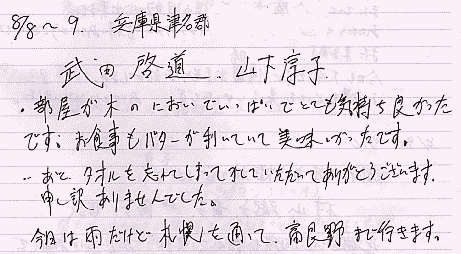 8/8～9. 兵庫県津名郡
武田 啓道. 山下淳子.
・部屋が木のにおいでいっぱいでとても気持ち良かった
です。お食事もバターが利いていて美味しかったです。
・あと、タオルを忘れてしまってかしていただいてありがとうございます。
申し訳ありませんでした。
今日は雨だけど札幌を通って、富良野まで行きます。